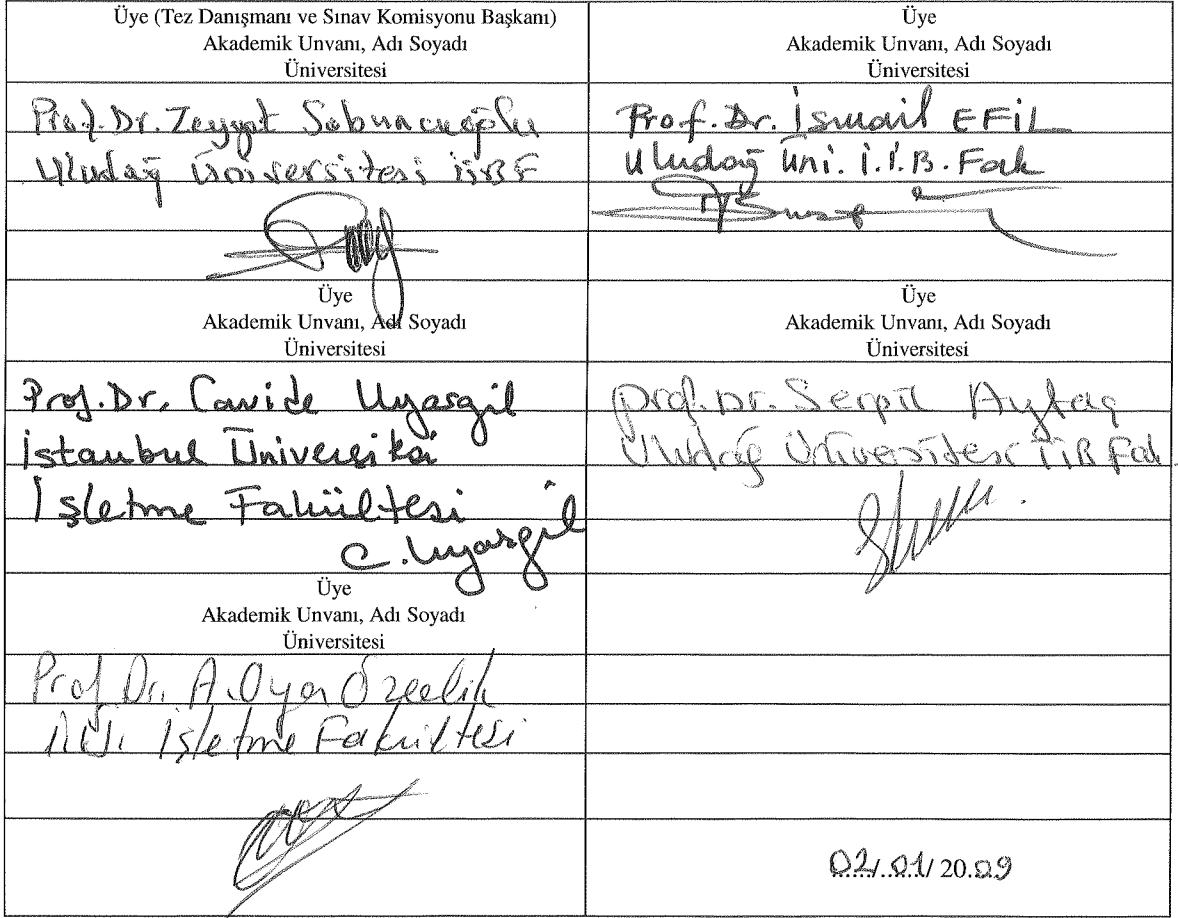 Üye (Tez Danışmanı ve Sınav Komisyonu Başkanı)
Akademik Unvanı, Adı Soyadı
Üniversitesi
Prof. Dr. Zeyyat Sabuncuoğlu
Uludağ Üniversitesi İİBF
Üye
Akademik Unvanı, Adı Soyadı
Üniversitesi
Prof. Dr. İsmail EFİL
Uludağ Üni. İ.İ.B. Fak
Üye
Akademik Unvanı, Adı Soyadı
Üniversitesi
Prof. Dr. Cavide Uyargil
İstanbul Üniversitesi
İşletme Fakültesi
C. Uyargil
Üye
Akademik Unvanı, Adı Soyadı
Üniversitesi
Prof. Dr. Serpil Aytaç
Uludağ Üniversitesi İİB Fak.
Üye
Akademik Unvanı, Adı Soyadı
Üniversitesi
Prof. Dr. A. Oya Özçelik
İ.Ü. İşletme Fakültesi
02/01/2009